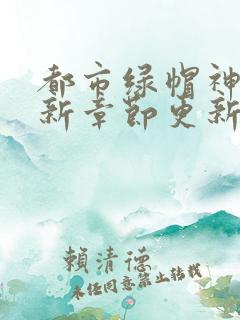 都市绿帽神
新章節更新
賴清德
未经同意禁止转载